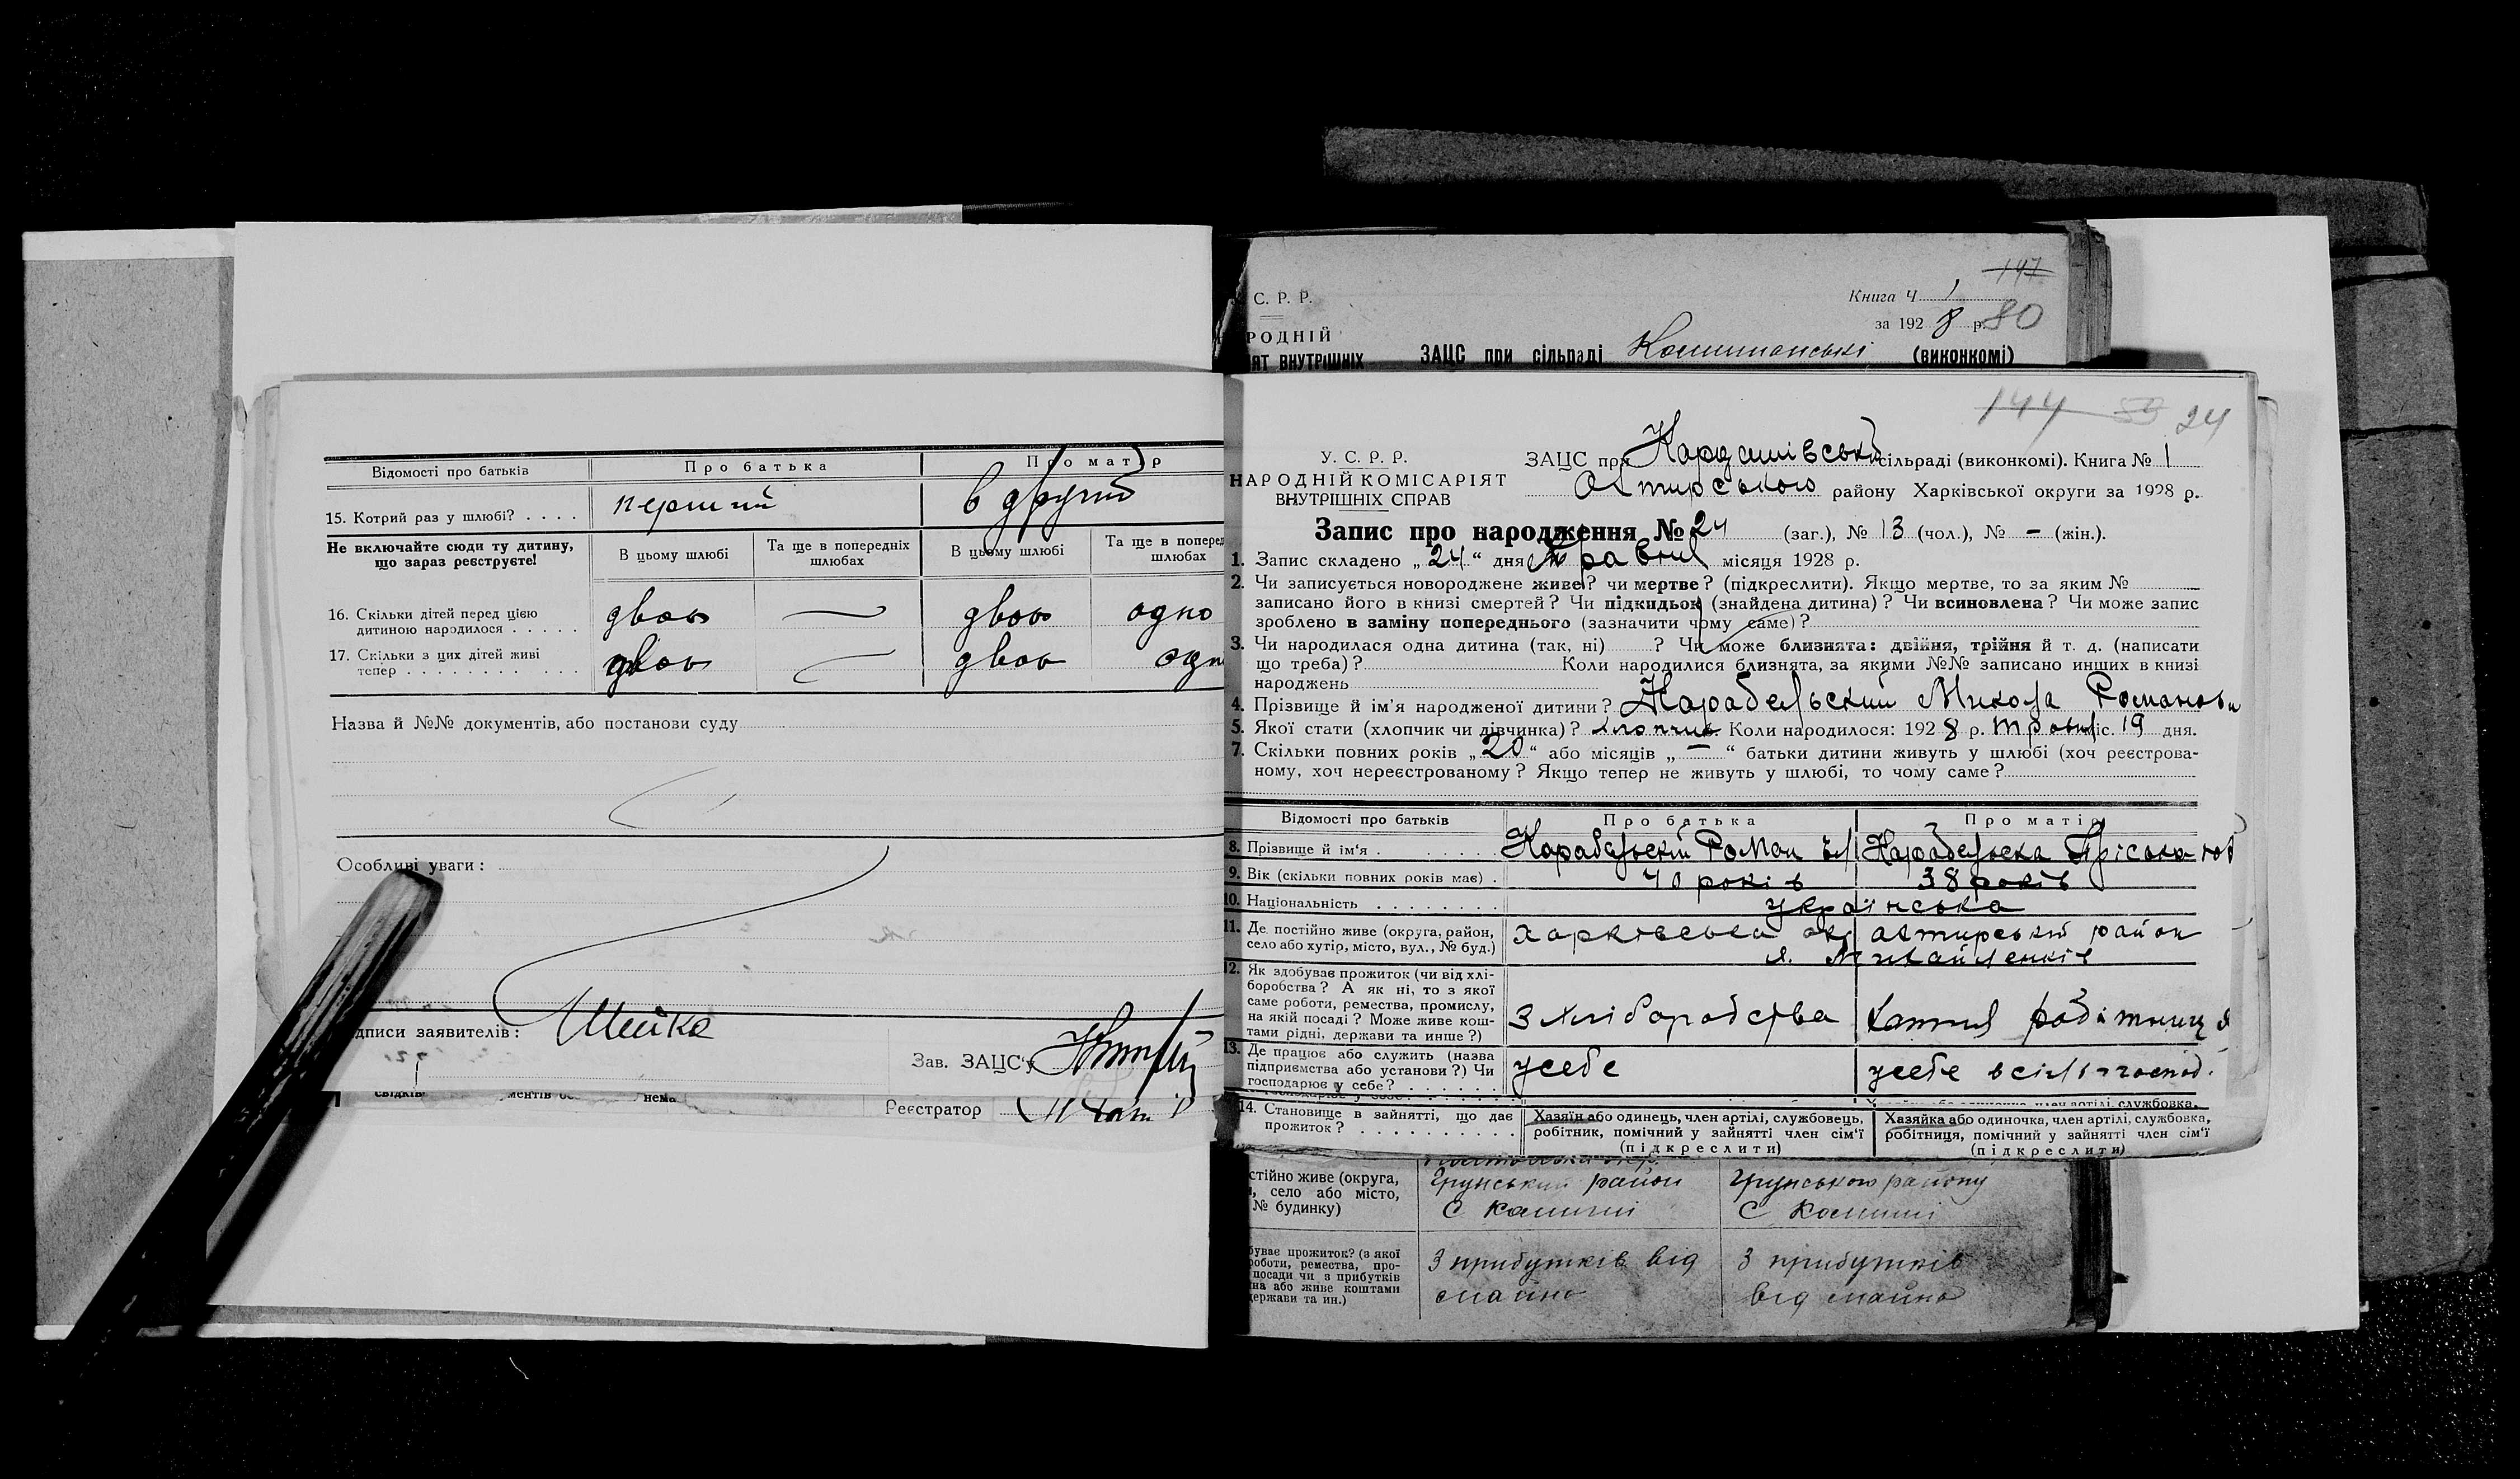 Відомості про батьків
Про батька
Про матір
15. Котрий раз у шлюбі? . . . .
перший
в другий
Не включайте сюди ту дитину, що зараз реєструєте!
В цьому шлюбі
Та ще в попередніх шлюбах
В цьому шлюбі
Та ще в поперед
шлюбах
16. Скільки дітей перед цією
дитиною народилося . . . . .
двоє
—
двоє
одно
17. Скільки з цих дітей живі
тепер . . . . . . . . . . . .
двоє
—
двоє
одн
Назва й №№ документів, або постанови суду
Особливі уваги:
дписи заявителів:
Шейка
Зав. ЗАЦС'у
Реєстратор
С. Р. Р.
Книга Ч 1
147
за 1928 р.
80
РОДНІЙ
ЯТ ВНУТРІШНІХ
ЗАЦС при сільраді
(виконкомі)
144 53 24
У. С. Р. Р.
НАРОДНІЙ КОМІСАРІЯТ
ВНУТРІШНІХ СПРАВ
ЗАЦС при Кардашівській сільраді (виконкомі). Книга № 1
Охтирського району Харківської округи за 1928 р.
Запис про народження № 24 (заг.), № 13 (чол.), № – (жін.).
1. Запис складено „ 24 “ дня Травня місяця 1928 р.
2. Чи записується новороджене живе? чи мертве? (підкреслити). Якщо мертве, то за яким №
записано його в книзі смертей? Чи підкидьок (знайдена дитина)? Чи всиновлена? Чи може запис
зроблено в заміну попереднього (зазначити чому саме)?
3. Чи народилася одна дитина (так, ні) ? Чи може близнята: двійня, трійня й т. д. (написати
що треба)? Коли народилися близнята, за якими №№ записано инших в книзі
народжень
4. Прізвище й ім'я народженої дитини? Карабельский Микола Романови
5. Якої стати (хлопчик чи дівчинка)? хлопчик Коли народилося: 1928 р. травня міс. 19 дня.
7. Скільки повних років „ 20 “ або місяців „ — “ батьки дитини живуть у шлюбі (хоч реєстрова-
ному, хоч нереєстрованому? Якщо тепер не живуть у шлюбі, то чому саме?
Відомості про батьків
Про батька
Про матір
8. Прізвище й ім'я .
Карабельский Роман
Карабельська Пріська
9. Вік (скільки повних років має) .
40 років
38 років
10. Національність . . . . . . . .
українська
11. Де постійно живе (округа, район,
село або хутір, місто, вул., № буд.)
Харківська окр
Охтирський район
х. Михайленків
12. Як здобуває прожиток (чи від хлі-
боробства? А як ні, то з якої
саме роботи, ремества, промислу,
на якій посаді? Може живе кош-
тами рідні, держави та инше?)
З хліборобства
хатня робітниця
13. Де працює або служить (назва
підприємства або установи?) Чи
господарює у себе? . . . . . .
усебе
усебе в сільгоспод.
14. Становище в зайнятті, що дає
прожиток? . . . . . . . . . . .
Хазяїн або одинець, член артілі, службовець,
робітник, помічний у зайнятті член сім'ї
(підкреслити)
Хазяйка або одиночка, член артілі, службовка,
робітниця, помічний у зайнятті член сім'ї
(підкреслити)
стійно живе (округа,
, село або місто,
№ будинку)
Грунський район
Грунського району
буває прожиток? (з якої
роботи, ремества, про-
посади чи з прибутків
на або живе коштами
держави та ин.)
З прибутків від
майна
З прибутків
від майна